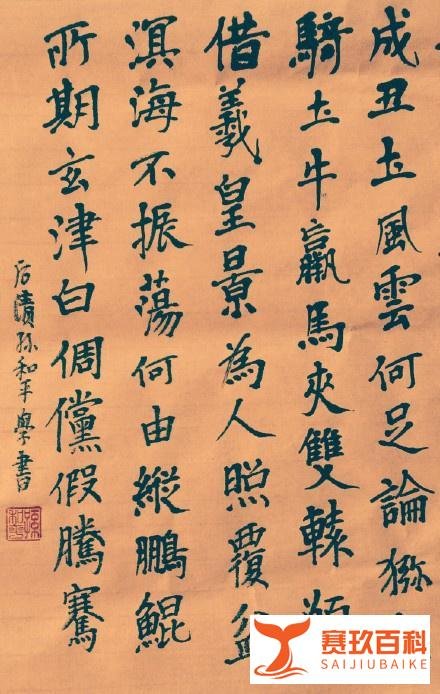 成丑士風雲何足論猕
騎土牛羸馬夾雙轅願
借羲皇景為人照覆盆
溟海不振蕩何由縱鵬鯤
所期玄津白倜儻假騰騫
孫和平學書
赛玖百科
SAIJIUBAIKE